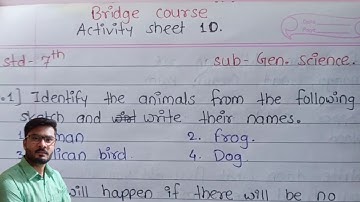 Bridge course
Activity sheet 10.
std- 7th
sub- Gen. science.
.1] Identify the animals from the following
sketch and write their names.
man
2. frog.
lican bird
4. Dog.
will happen if there will be no